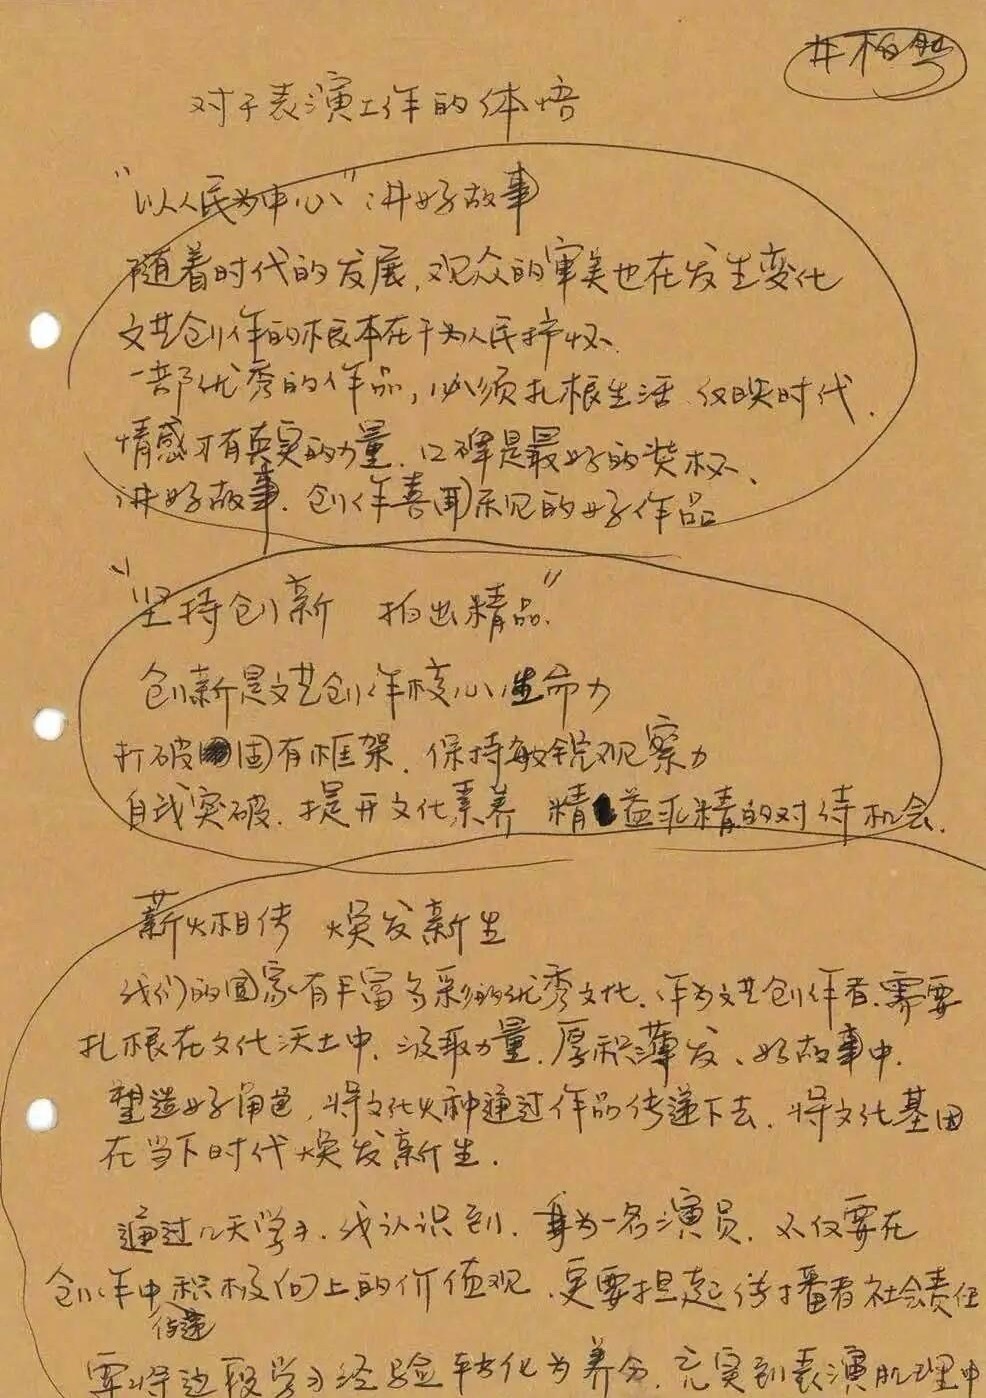 井柏然
对于表演工作的体悟
"以人民为中心"讲好故事
随着时代的发展,观众的审美也在发生变化
文艺创作的根本在于为人民抒怀、
一部优秀的作品,必须扎根生活、反映时代、
情感才有真实的力量、口碑是最好的奖杯、
讲好故事、创作喜闻乐见的好作品
"坚持创新 拍出精品"
创新是文艺创作核心生命力
打破固有框架、保持敏锐观察力
自我突破、提升文化素养 精益求精的对待机会、
薪火相传 焕发新生
我们的国家有丰富多彩的优秀文化、作为文艺创作者、需要
扎根在文化沃土中、汲取力量、厚积薄发、好故事中、
塑造好角色,将文化火种通过作品传递下去、将文化基因
在当下时代焕发新生、
通过几天学习、我认识到、身为一名演员、不仅要在
创作中传递积极向上的价值观、更要担起传播者社会责任
要将这段学习经验转化为养分、充实到表演肌理中